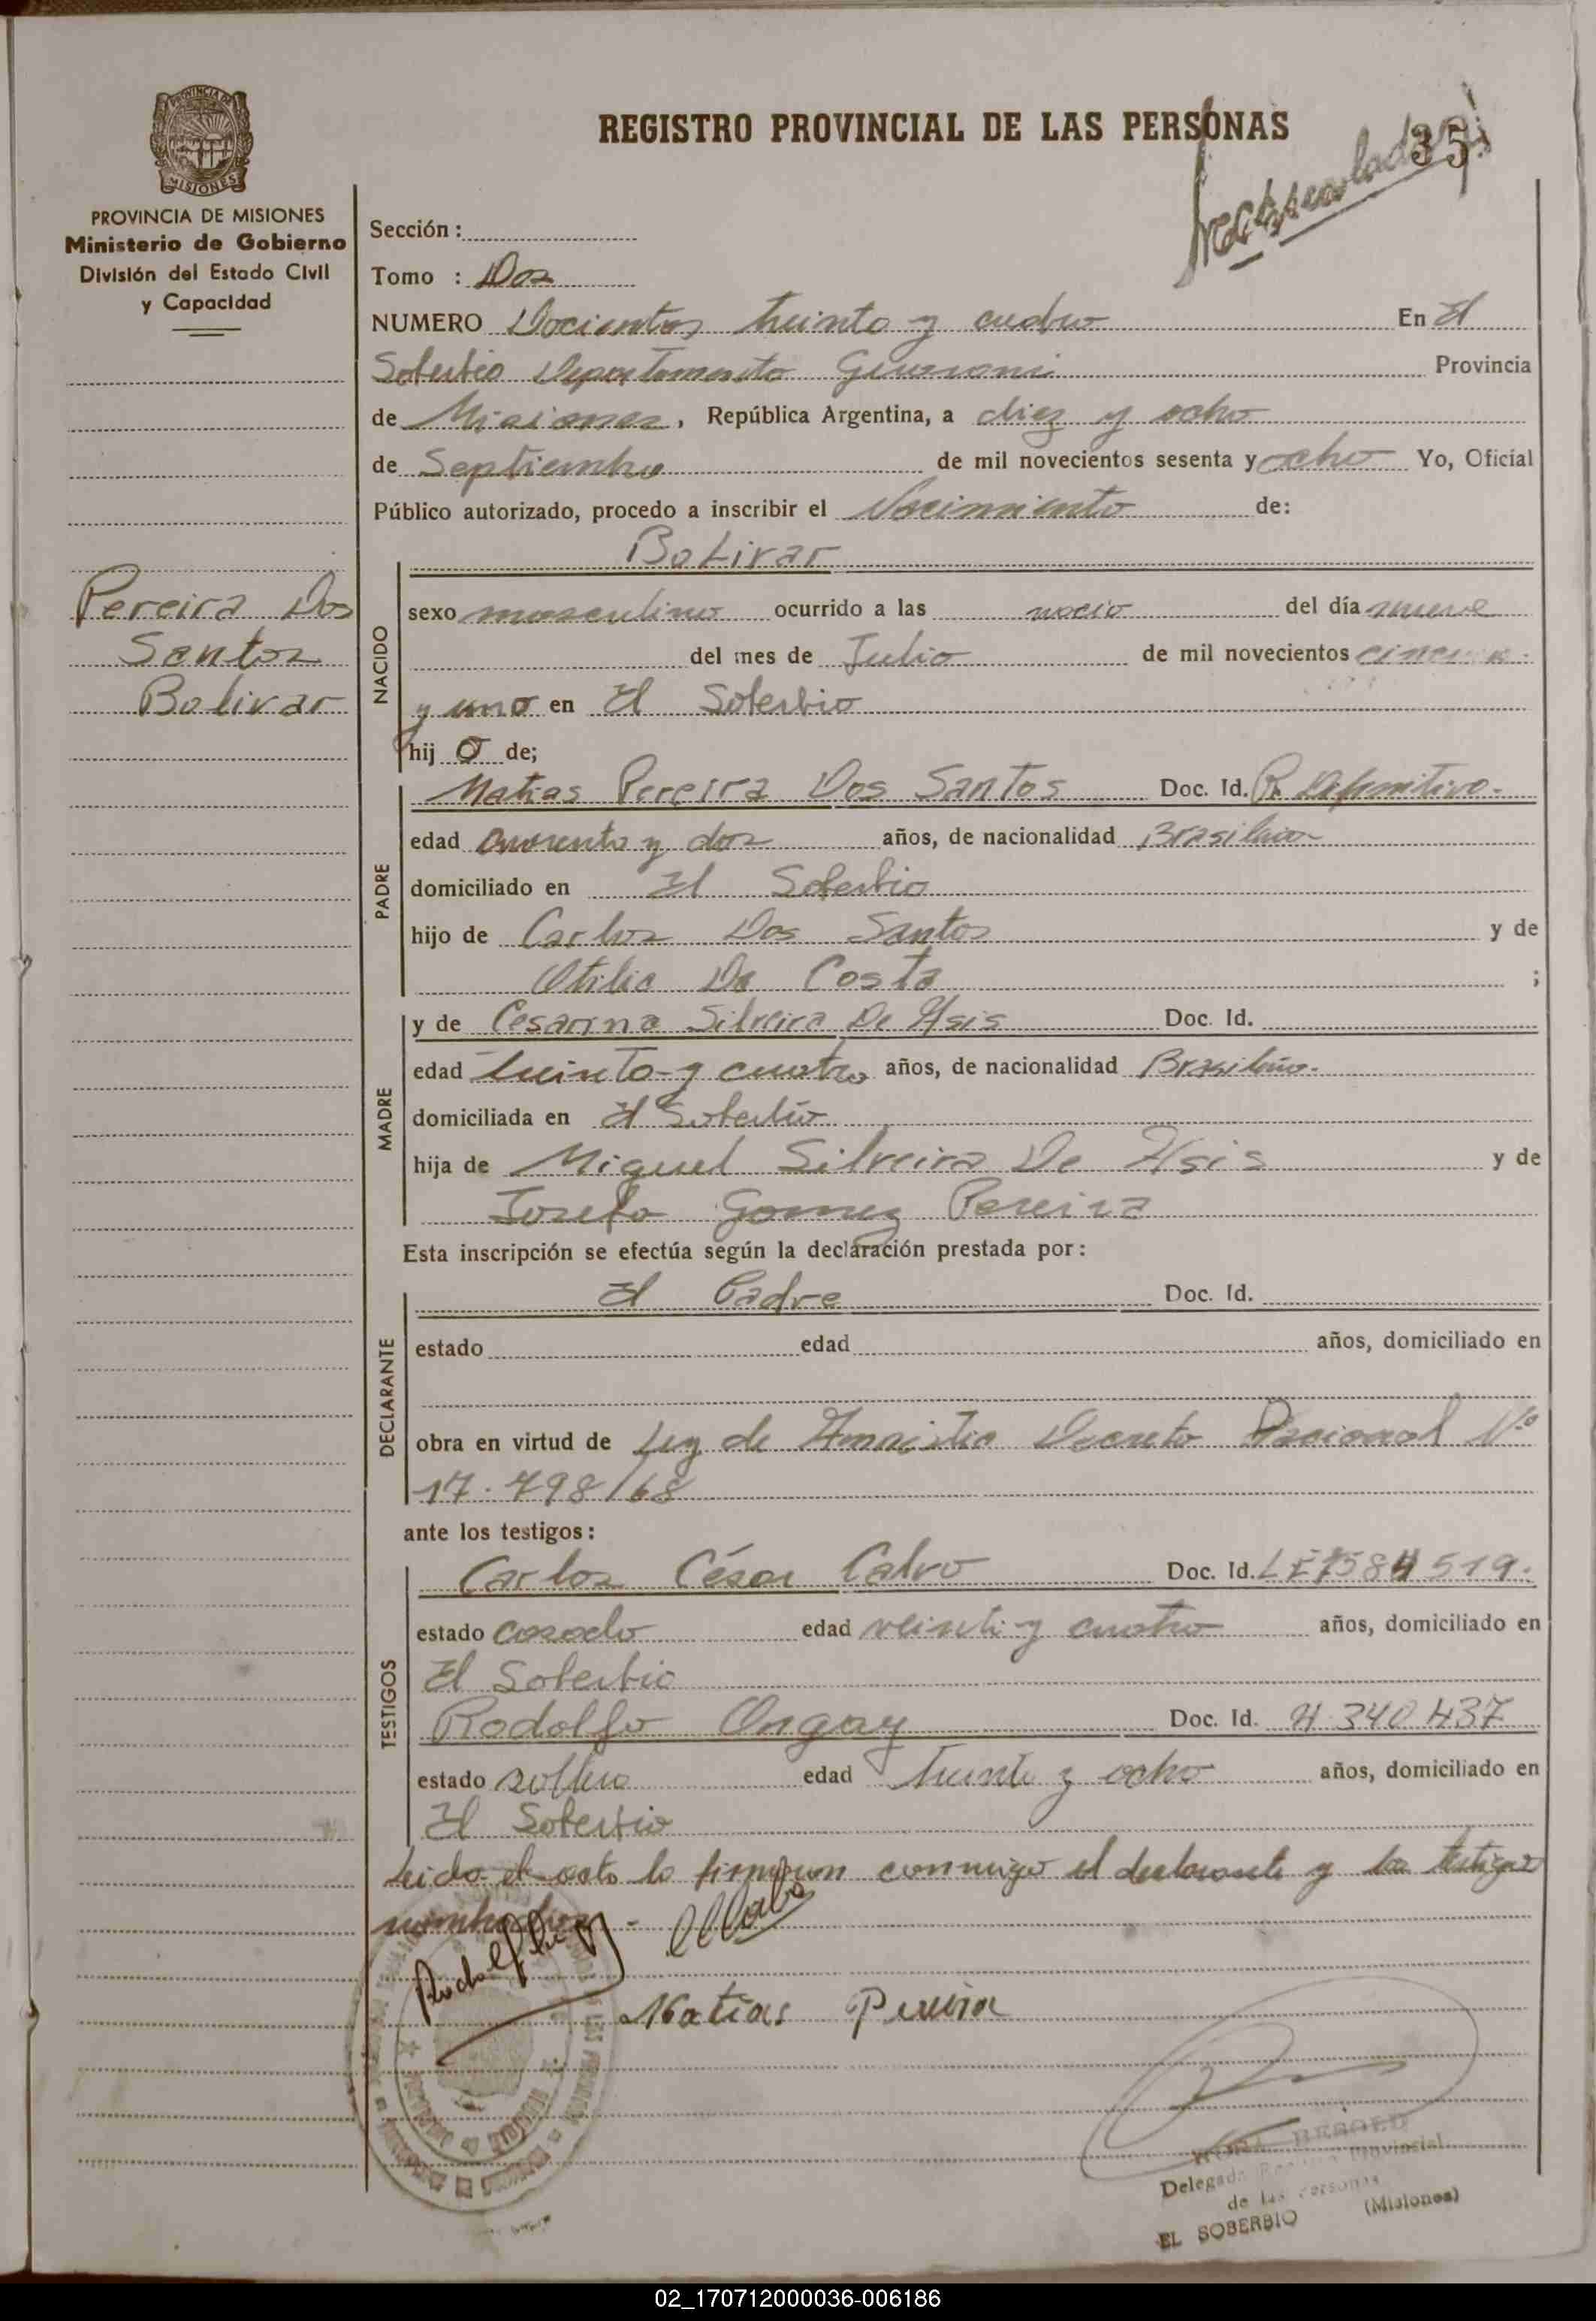 REGISTRO PROVINCIAL DE LAS PERSONAS
35
PROVINCIA DE MISIONES
Ministerio de Gobierno
División del Estado Civil
y Capacidad
Sección :
Tomo : Dos
NUMERO Docientos treinta y cuatro En El
Soberbio Departamento Guarani Provincia
de Misiones, República Argentina, a diez y ocho
de Septiembre de mil novecientos sesenta y ocho Yo, Oficial
Público autorizado, procedo a inscribir el Nacimiento de:
Pereira Dos
Santos
Bolivar
NACIDO
Bolivar
sexo masculino ocurrido a las nacio del día nueve
del mes de Julio de mil novecientos
y uno en El Soberbio
hij o de;
PADRE
Matias Pereira Dos Santos Doc. Id. R. Definitivo.
edad cuarenta y dos años, de nacionalidad Brasilera
domiciliado en El Soberbio
hijo de Carlos Dos Santos y de
Otilia Da Costa ;
MADRE
y de Cesarina Silveira De Asis Doc. Id.
edad treinta y cuatro años, de nacionalidad Brasileña.
domiciliada en El Soberbio
hija de Miguel Silveira De Asis y de
Josefa Gomez Pereira
Esta inscripción se efectúa según la declaración prestada por:
DECLARANTE
El Padre Doc. Id.
estado edad años, domiciliado en
obra en virtud de Ley de Amnistia Decreto Nacional Nº
17.798/68
ante los testigos:
TESTIGOS
Carlos César Calvo Doc. Id. LE 7584519.
estado casado edad veinti y cuatro años, domiciliado en
El Soberbio
Rodolfo Ongay Doc. Id. 4.340.437
estado soltero edad treinta y ocho años, domiciliado en
El Soberbio
Leida el acta la firmaron conmigo el declarante y los testigos
nombrados.-
Matias Pereira
Delegado Registro Provincial
de las Personas
EL SOBERBIO (Misiones)
02_170712000036-006186